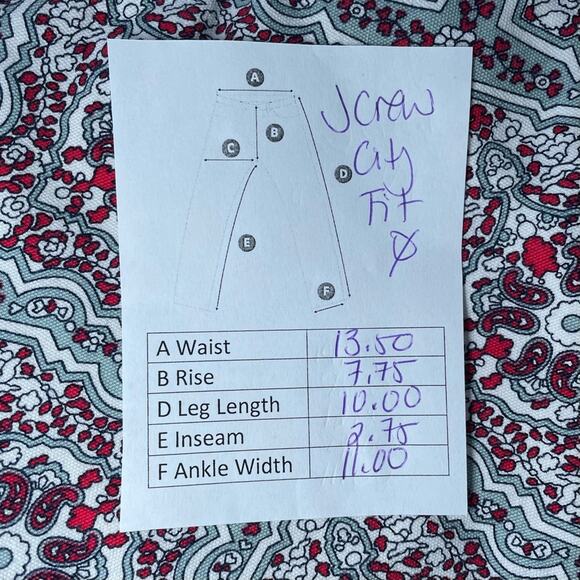 A
B
C
D
E
F
J Crew
City
Fit
0
A Waist 13.50
B Rise 7.75
D Leg Length 10.00
E Inseam 2.75
F Ankle Width 11.00